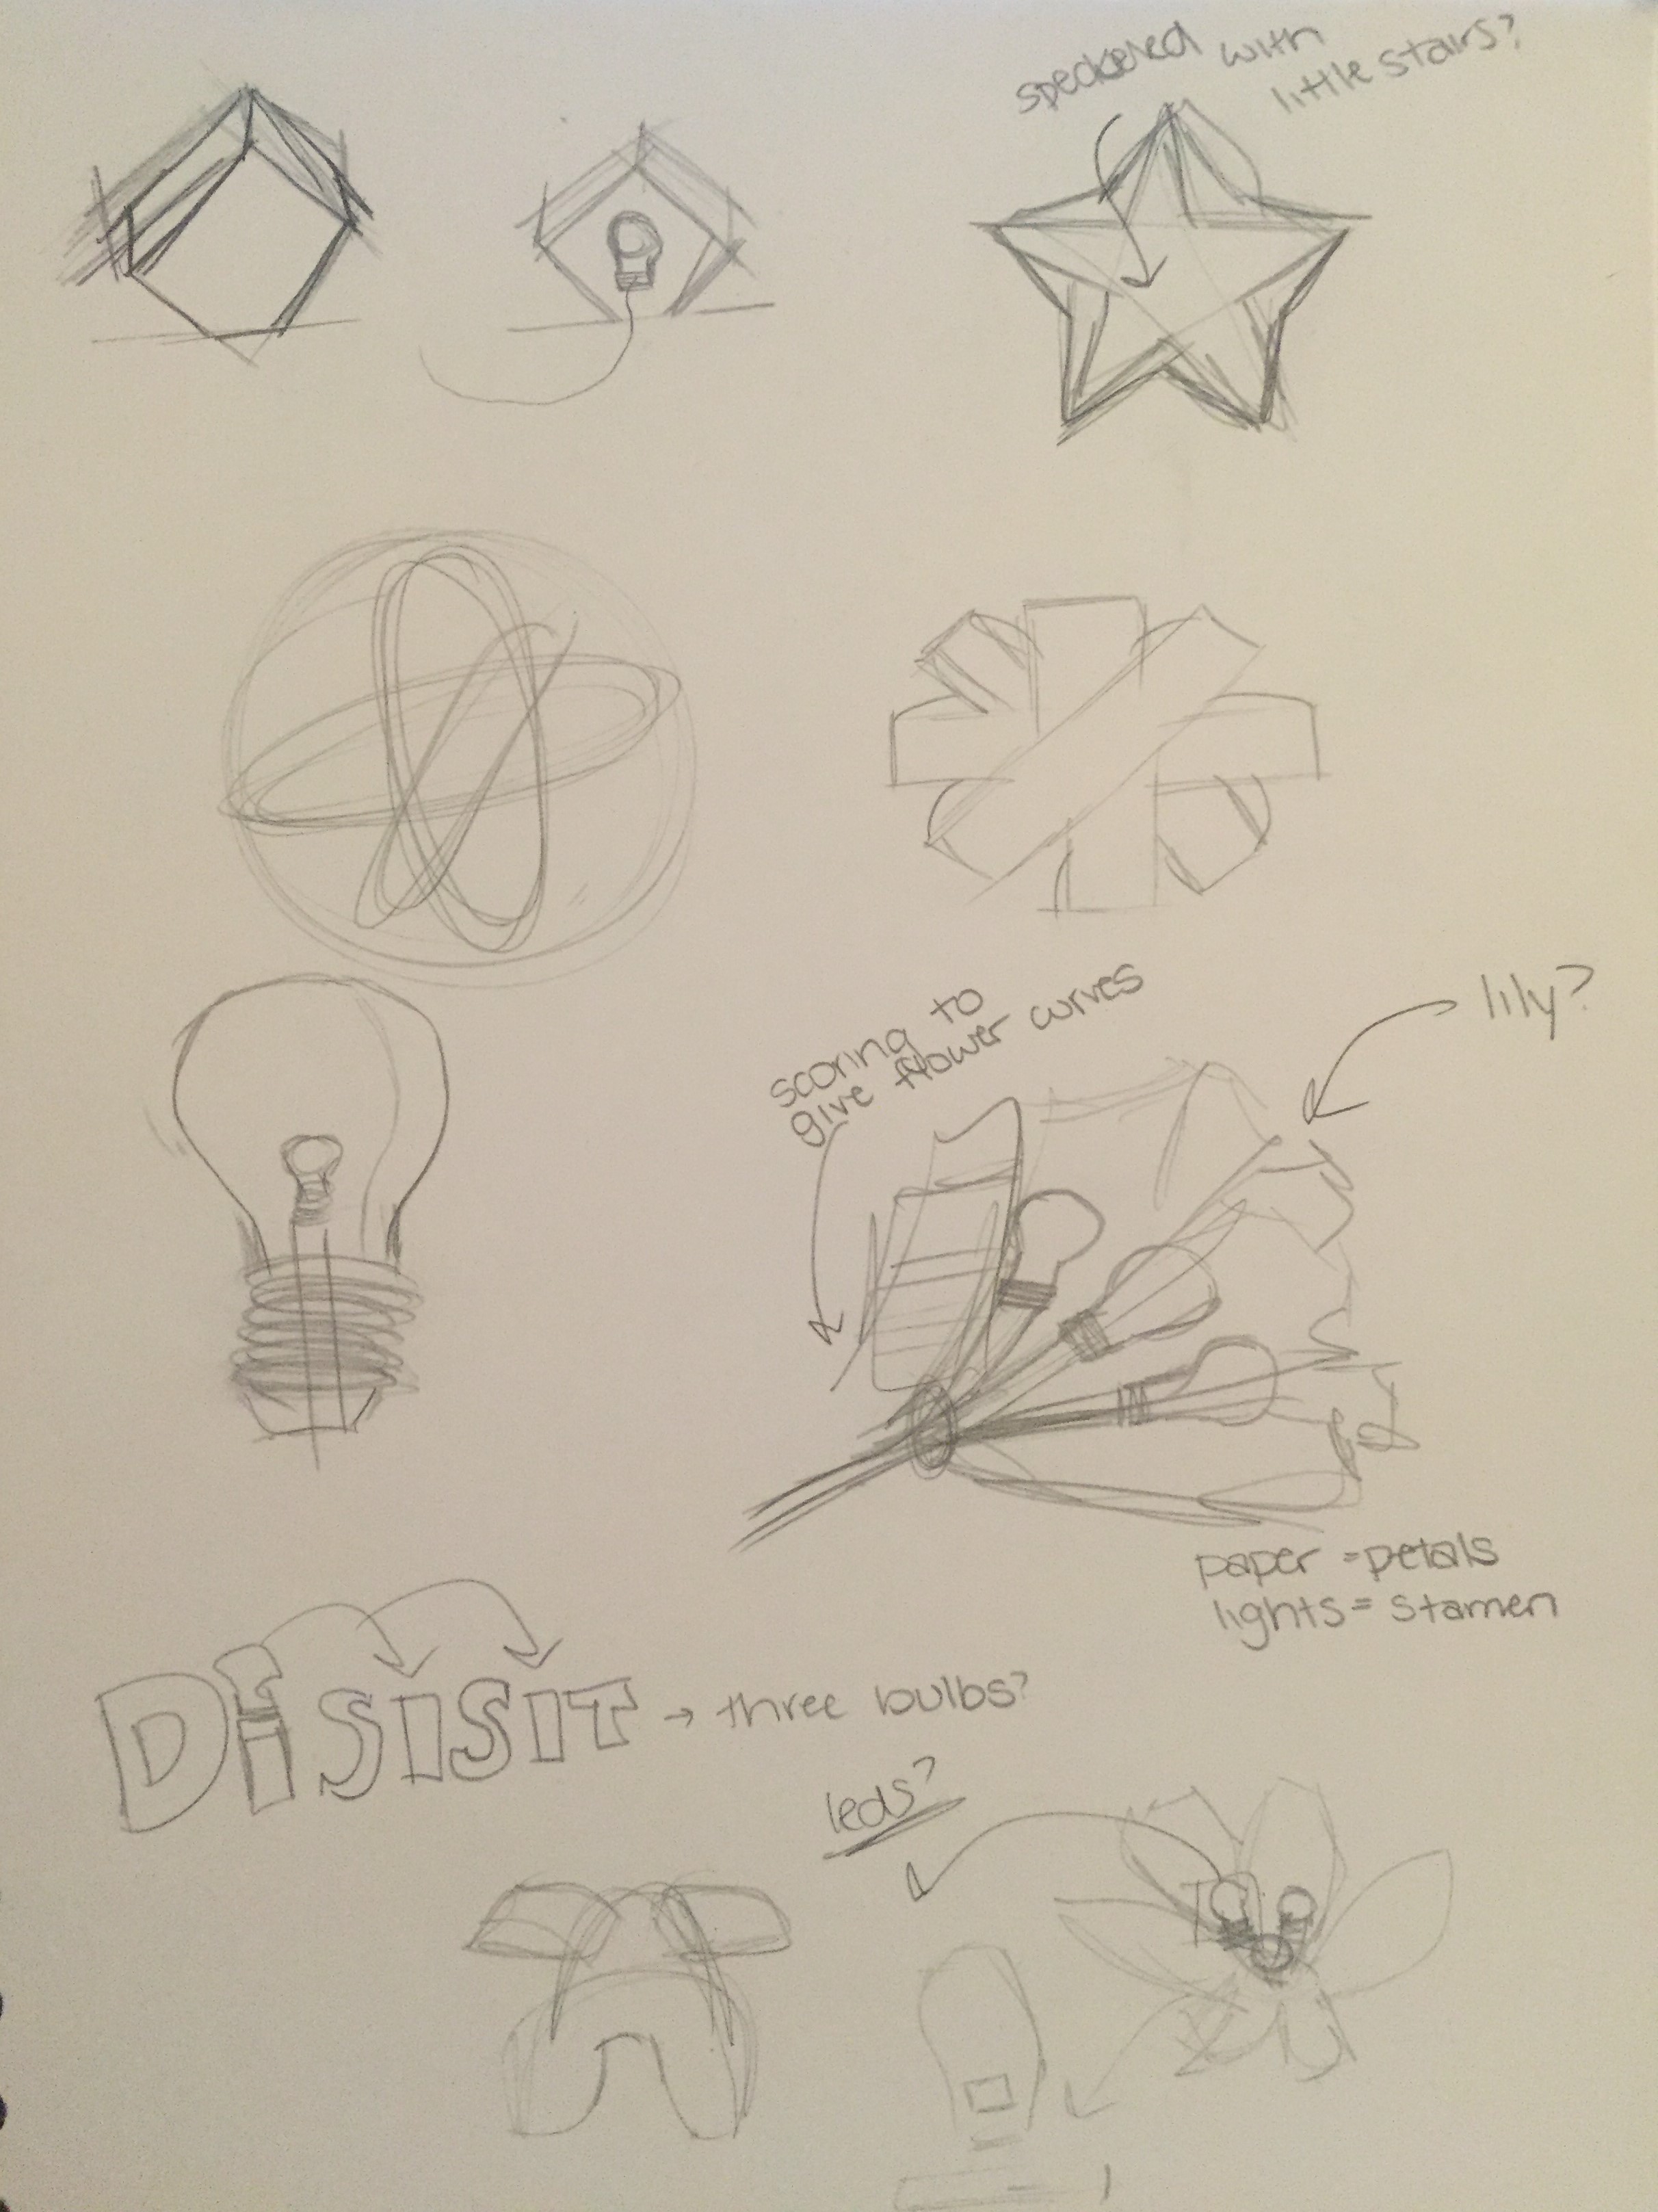 speckeled with
little stairs?
scoring to
give flower curves
lily?
paper = petals
lights = stamen
DiSISIT → three bulbs?
leds?